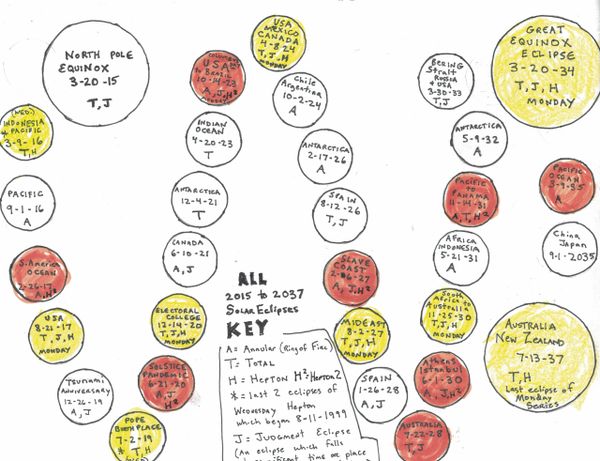 NORTH POLE
EQUINOX
3-20-15
T, J
(MED.)
INDONESIA
PACIFIC
3-9-16
T, H
PACIFIC
9-1-16
A
S. America
OCEAN
2-26-17
A, H²
USA
8-21-17
T, J, H
MONDAY
Tsunami
ANNIVERSARY
12-26-19
A, J
POPE
BIRTHPLACE
7-2-19
* T, H
SOLSTICE
PANDEMIC
6-21-20
A, J
H²
ELECTORAL
COLLEGE
12-14-20
T, J, H
MONDAY
CANADA
6-10-21
A, J
ANTARCTICA
12-4-21
T
INDIAN
OCEAN
4-20-23
T
USA
to Brazil
10-14-23
A, J, H²
USA
MEXICO
CANADA
4-8-24
T, J, H
MONDAY
Chile
Argentina
10-2-24
A
ANTARCTICA
2-17-26
A
SPAIN
8-12-26
T, J
SLAVE
COAST
2-6-27
A, J, H²
MIDEAST
8-2-27
T, J, H
MONDAY
SPAIN
1-26-28
A, J
AUSTRALIA
7-22-28
T, J
Athens
Istanbul
6-1-30
A, J, H²
South
Africa to
Australia
11-25-30
T, J, H
MONDAY
AFRICA
INDONESIA
5-21-31
A
PACIFIC
to
PANAMA
11-14-31
A, T, H²
ANTARCTICA
5-9-32
A
BERING
Strait
Russia
& USA
3-30-33
T, J
GREAT
EQUINOX
ECLIPSE
3-20-34
T, J, H
MONDAY
PACIFIC
OCEAN
3-9-35
A
China
Japan
9-1-2035
AUSTRALIA
NEW ZEALAND
7-13-37
T, H
Last eclipse of
Monday
Series
ALL
2015 to 2037
Solar Eclipses
KEY
A = Annular (Ring of Fire)
T = TOTAL
H = HEPTON H² = HEPTON 2
* = last 2 eclipses of
Wednesday Hepton
which began 8-11-1999
J = JUDGMENT Eclipse
(An eclipse which falls
significant time or place